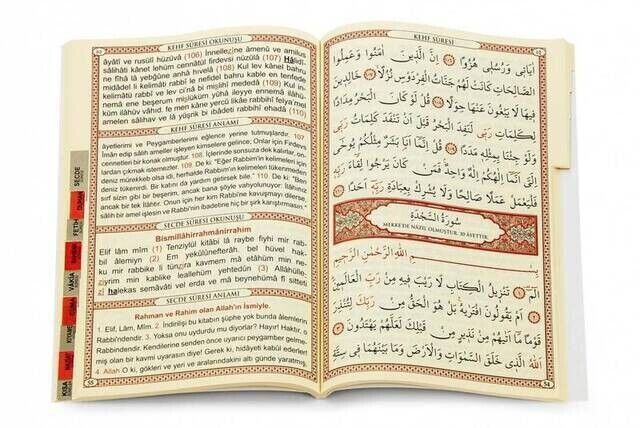 KEHF SÛRESİ OKUNUŞU
âyâtî ve rusulî hüzüvâ (106) İnnellezîne âmenû ve amilus
sâlihâti kânet lehüm cennâtül firdevsi nüzülâ (107) Hâlidî-
ne fîhâ lâ yebğûne anhâ hıvelâ (108) Kul lev kânel bahru
midâdel li kelimâti rabbî le nefidel bahru kable en tenfede
kelimâtü rabbî ve lev ci'nâ bi mislihî mededâ (109) Kul in-
nemâ ene beşerum mislüküm yûhâ ileyye ennemâ ilâhü-
küm ilâhüv vâhid, fe men kâne yercû likâe rabbihî felya'mel
amelen sâlihav ve lâ yüşrik bi ibâdeti rabbihî ehadâ (110)
KEHF SÛRESİ ANLAMI
âyetlerimi ve Peygamberlerimi eğlence yerine tutmuşlardır. 107
İman edip salih ameller işleyen kimselere gelince; Onlar için Firdevs
cennetleri bir konak olmuştur. 108. İçlerinde sonsuza dek kalırlar, on-
lardan çıkmak istemezler. 109. De ki: "Eğer Rabbim'in kelimeleri için
deniz mürekkeb olsa idi, herhalde Rabbim'in kelimeleri tükenmeden
deniz tükenirdi. Bir katını da yardım getirsek bile." 110. De ki: "Ben
sırf sizin gibi bir beşerim, ancak bana şöyle vahyolunuyor: İlâhınız
ancak bir tek ilâhtır. Onun için her kim Rabbi'ne kavuşmayı dilerse,
salih bir amel işlesin ve Rabbi'nin ibadetine hiç bir şirk karıştırmasın."
SECDE SÛRESİ OKUNUŞU
Bismillâhirrahmânirrahîm
Elif lâm mîm (1) Tenzîylül kitâbi lâ raybe fîyhi mir rab-
bil âlemîyn (2) Em yekûlûnefterâh, bel hüvel hak-
ku mir rabbike li tünzira kavmem mâ etâhüm min ne-
zîyrim min kablike leallehüm yehtedûn (3) Allâhülle-
zî halekas semâvâti vel erda ve mâ beynehümâ fî sitteti
SECDE SÛRESİ ANLAMI
Rahman ve Rahim olan Allah'ın İsmiyle.
1. Elif, Lâm, Mîm. 2. İndirilişi bu kitabın şüphe yok bunda âlemlerin
Rabbi'ndendir. 3. Yoksa onu uydurdu mu diyorlar? Hayır! Haktır, o
Rabbi'ndendir. Kendilerine senden önce uyarıcı peygamber gelme-
miş olan bir kavmi uyarasın diye! Gerek ki, hidâyeti kabûl ederler!
4. Allah O ki, gökleri ve yeri ve aralarındakini altı günde yaratmış,
55
SECDE
DUHAN
FETİH
VÂKIA
KEHF SÛRESİ
اٰيَاتٖي وَرُسُلٖي هُزُوًا ﴿١٠٦﴾ اِنَّ الَّذٖينَ اٰمَنُوا وَعَمِلُوا
الصَّالِحَاتِ كَانَتْ لَهُمْ جَنَّاتُ الْفِرْدَوْسِ نُزُلًا ﴿١٠٧﴾ خَالِدٖينَ
فٖيهَا لَا يَبْغُونَ عَنْهَا حِوَلًا ﴿١٠٨﴾ قُلْ لَوْ كَانَ الْبَحْرُ مِدَادًا
لِكَلِمَاتِ رَبّٖي لَنَفِدَ الْبَحْرُ قَبْلَ اَنْ تَنْفَدَ كَلِمَاتُ رَبّٖي
وَلَوْ جِئْنَا بِمِثْلِهٖ مَدَدًا ﴿١٠٩﴾ قُلْ اِنَّمَا اَنَا بَشَرٌ مِثْلُكُمْ يُوحٰى
اِلَيَّ اَنَّمَا اِلٰهُكُمْ اِلٰهٌ وَاحِدٌ فَمَنْ كَانَ يَرْجُوا لِقَاءَ رَبِّهٖ
فَلْيَعْمَلْ عَمَلًا صَالِحًا وَلَا يُشْرِكْ بِعِبَادَةِ رَبِّهٖ اَحَدًا ﴿١١٠﴾
سُورَةُ السَّجْدَةِ
MEKKE'DE NÂZİL OLMUŞTUR. 30 ÂYETTİR.
بِسْمِ اللّٰهِ الرَّحْمٰنِ الرَّحٖيمِ
الٓمٓ ﴿١﴾ تَنْزٖيلُ الْكِتَابِ لَا رَيْبَ فٖيهِ مِنْ رَبِّ الْعَالَمٖينَ
﴿٢﴾ اَمْ يَقُولُونَ افْتَرٰيهُ بَلْ هُوَ الْحَقُّ مِنْ رَبِّكَ لِتُنْذِرَ
قَوْمًا مَا اَتٰيهُمْ مِنْ نَذٖيرٍ مِنْ قَبْلِكَ لَعَلَّهُمْ يَهْتَدُونَ ﴿٣﴾
اَللّٰهُ الَّذٖي خَلَقَ السَّمٰوَاتِ وَالْاَرْضَ وَمَا بَيْنَهُمَا فٖي سِتَّةِ
54